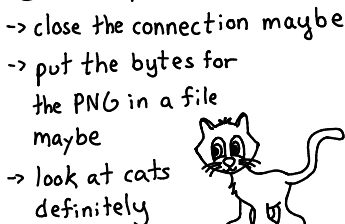 -> close the connection maybe
-> put the bytes for
the PNG in a file
maybe
-> look at cats
definitely